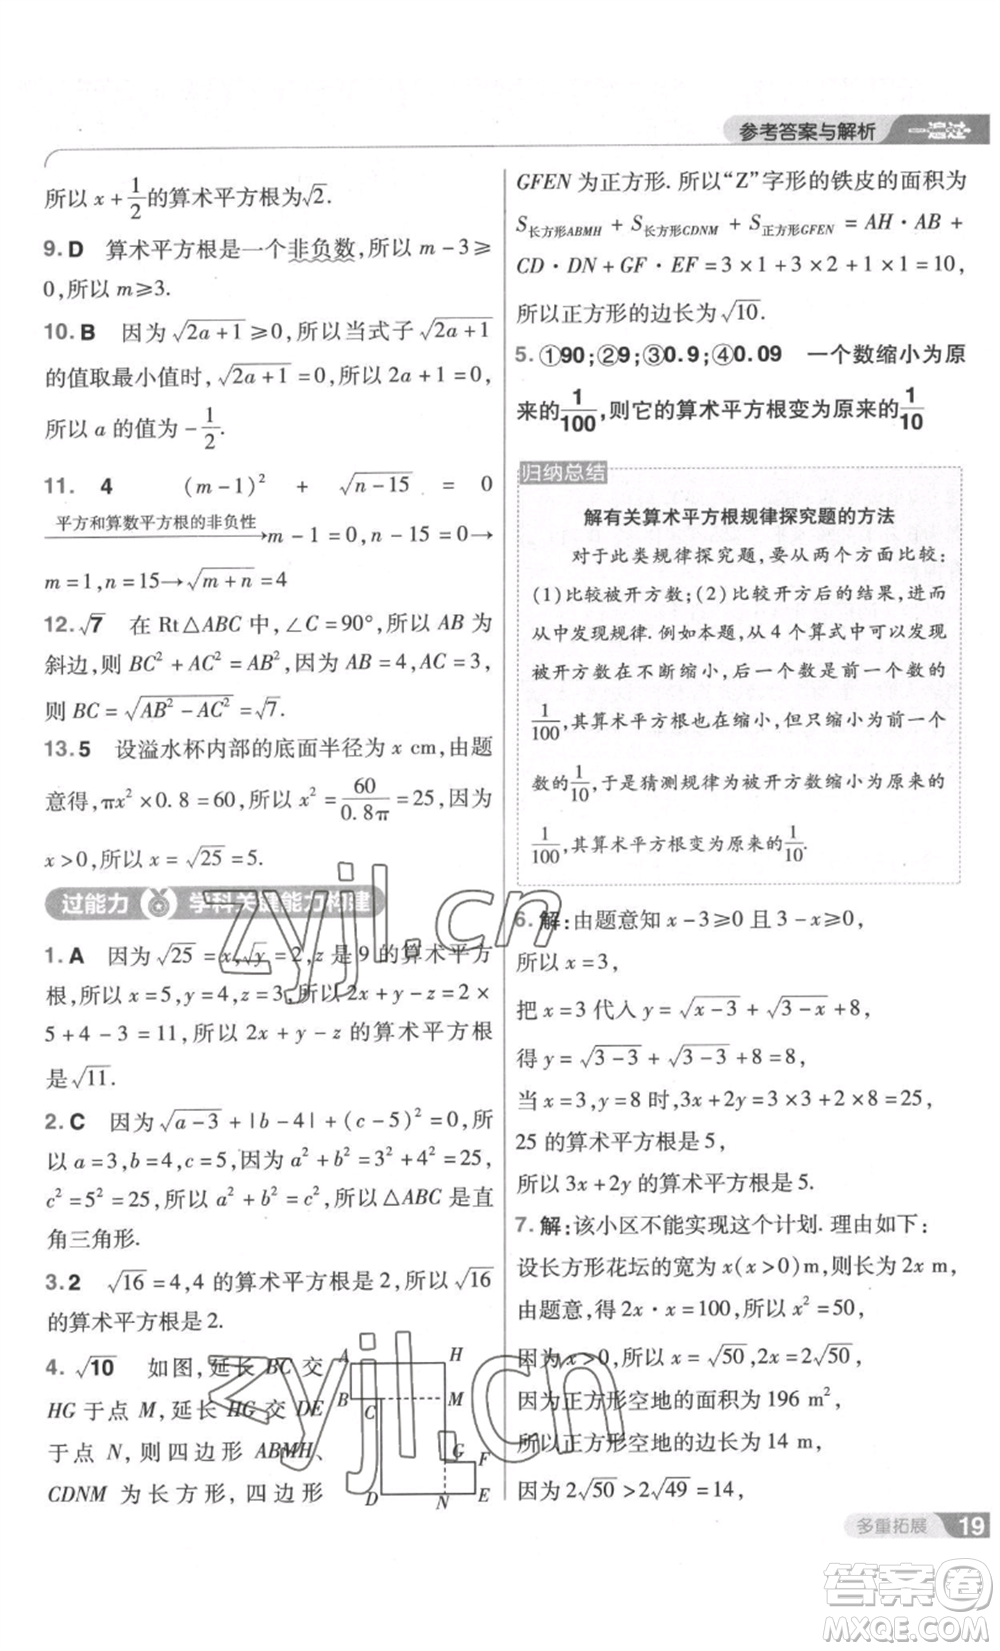 参考答案与解析 一遍过
所以 x + 1/2 的算术平方根为√2.
9. D 算术平方根是一个非负数,所以 m - 3 ≥
0,所以 m≥3.
10. B 因为√(2a+1) ≥0,所以当式子√(2a+1)
的值取最小值时,√(2a+1) = 0,所以 2a + 1 = 0,
所以 a 的值为 - 1/2.
11. 4 (m-1)² + √(n-15) = 0
平方和算数平方根的非负性→ m - 1 = 0, n - 15 = 0→
m = 1, n = 15→√(m+n) = 4
12. √7 在 Rt△ABC 中,∠C = 90°,所以 AB 为
斜边,则 BC² + AC² = AB²,因为 AB = 4, AC = 3,
则 BC = √(AB² - AC²) = √7.
13. 5 设溢水杯内部的底面半径为 x cm,由题
意得,πx² × 0.8 = 60,所以 x² = 60/0.8π = 25,因为
x > 0,所以 x = √25 = 5.
过能力 学科关键能力构建
1. A 因为 √25 = x, √y = 2, z 是 9 的算术平方
根,所以 x = 5, y = 4, z = 3,所以 2x + y - z = 2 ×
5 + 4 - 3 = 11,所以 2x + y - z 的算术平方根
是√11.
2. C 因为√(a-3) + |b - 4| + (c - 5)² = 0,所
以 a = 3, b = 4, c = 5,因为 a² + b² = 3² + 4² = 25,
c² = 5² = 25,所以 a² + b² = c²,所以△ABC 是直
角三角形.
3. 2 √16 = 4,4 的算术平方根是 2,所以√16
的算术平方根是 2.
4. √10 如图,延长 BC 交
HG 于点 M,延长 HG 交 DE
于点 N,则四边形 ABMH、
CDNM 为长方形,四边形
A H
B C M
G F
D N E
GFEN 为正方形. 所以“Z”字形的铁皮的面积为
S长方形ABMH + S长方形CDNM + S正方形GFEN = AH·AB +
CD·DN + GF·EF = 3 × 1 + 3 × 2 + 1 × 1 = 10,
所以正方形的边长为 √10.
5. ①90;②9;③0.9;④0.09 一个数缩小为原
来的1/100,则它的算术平方根变为原来的1/10
归纳总结
解有关算术平方根规律探究题的方法
对于此类规律探究题,要从两个方面比较:
(1)比较被开方数;(2)比较开方后的结果,进而
从中发现规律. 例如本题,从 4 个算式中可以发现
被开方数在不断缩小,后一个数是前一个数的
1/100,其算术平方根也在缩小,但只缩小为前一个
数的1/10,于是猜测规律为被开方数变为原来的
1/100,其算术平方根变为原来的1/10.
6. 解:由题意知 x - 3≥0 且 3 - x≥0,
所以 x = 3,
把 x = 3 代入 y = √(x-3) + √(3-x) + 8,
得 y = √(3-3) + √(3-3) + 8 = 8,
当 x = 3, y = 8 时, 3x + 2y = 3 × 3 + 2 × 8 = 25,
25 的算术平方根是 5,
所以 3x + 2y 的算术平方根是 5.
7. 解:该小区不能实现这个计划. 理由如下:
设长方形花坛的宽为 x(x > 0) m,则长为 2x m,
由题意,得 2x·x = 100,所以 x² = 50,
因为 x > 0,所以 x = √50, 2x = 2√50,
因为正方形空地的面积为 196 m²,
所以正方形空地的边长为 14 m,
因为 2√50 > 2√49 = 14,
多重拓展 19
zyjl.cn
zyjl.cn
答案卷
MXQE.COM